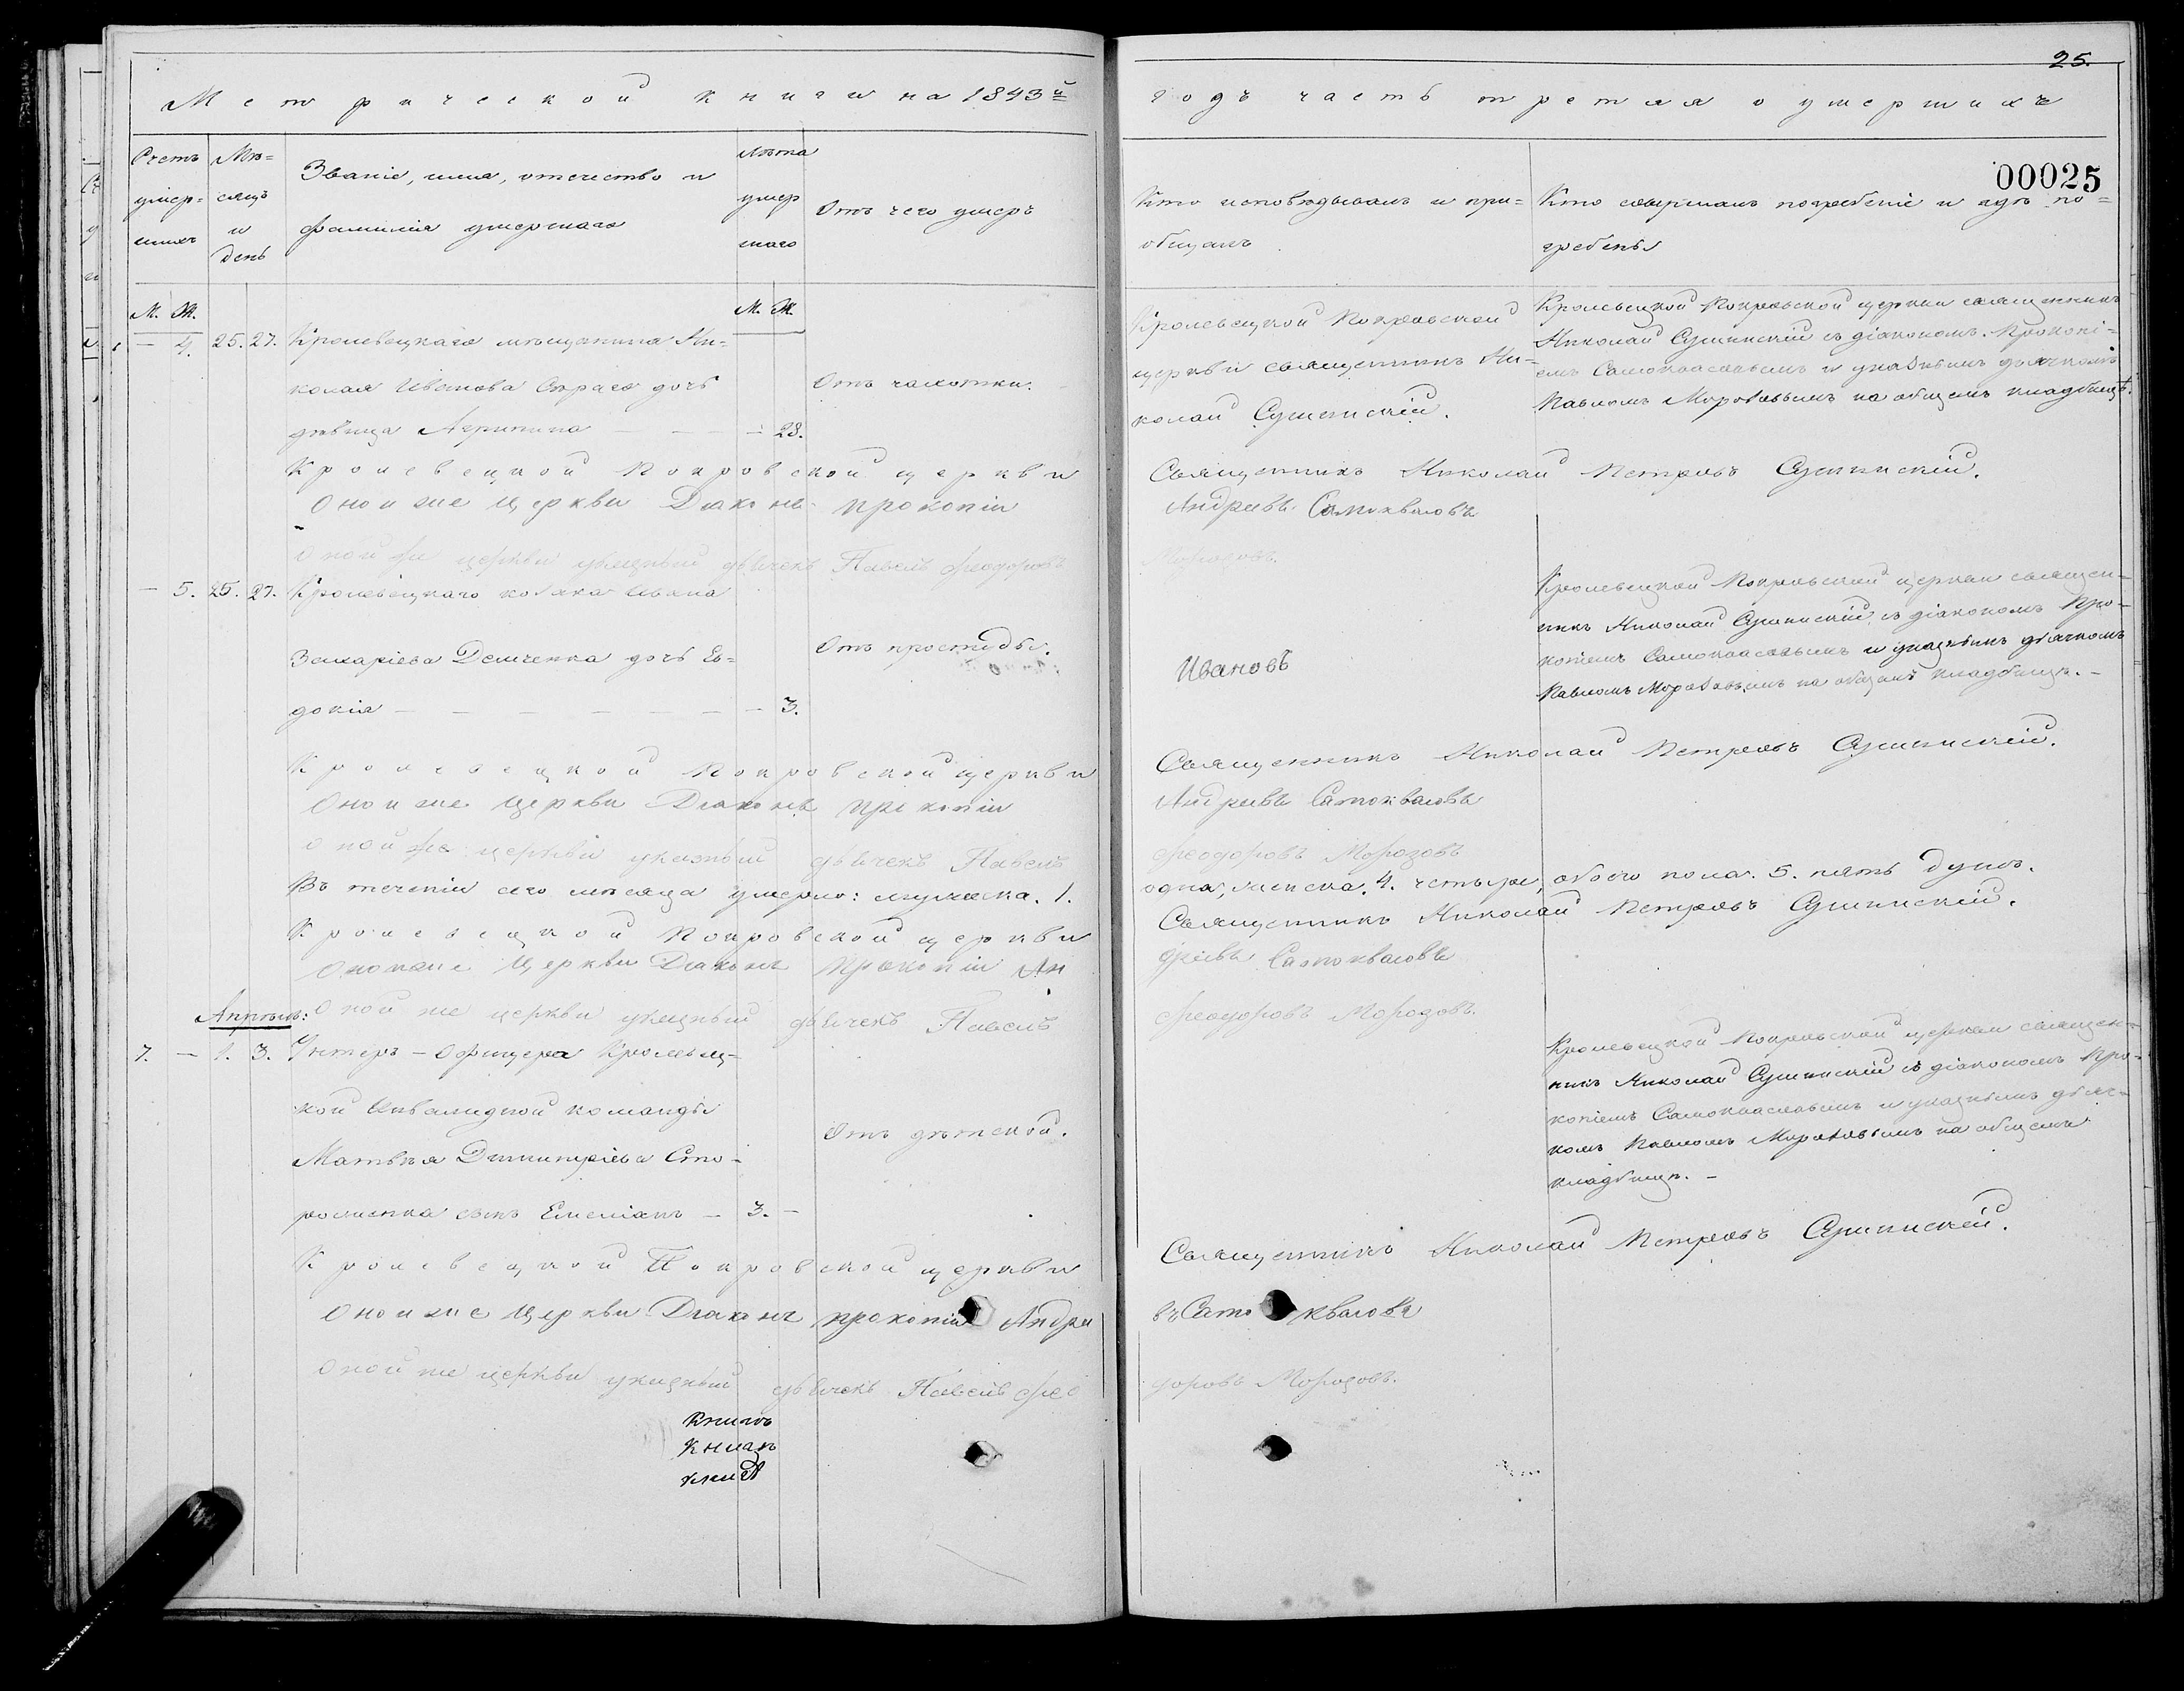 25.
Метрической книги на 1843й
годъ часть третяя о умершихъ
00025
Счетъ умер=шихъ
Мѣ=сяцъ и день
Званіе, имя, отечество и фамилія умершаго
Лѣта умершаго
Отъ чего умеръ
Кто исповѣдывалъ и при=общалъ
Кто совершалъ погребеніе и гдѣ по=гребены
М. Ж.
М. Ж.
— 4. 25. 27. Кролевецкаго мѣщанина Ни=
колая Иванова дочь
дѣвица Агрипина — — — 28.
Отъ чахотки.
Кролевецкой Покровской
церкви священникъ Ни=
колай Сушинскій.
Кролевецкой Покровской церкви священникъ
Николай Сушинскій съ діакономъ Прокопі=
емъ Самоквасовымъ и указнымъ дьячкомъ
Павломъ Морозовымъ на общемъ кладбищѣ.
Кролевецкой Покровской церкви Священникъ Николай Петровъ Сушинскій.
Оной же Церкви Диаконъ прокопій Андреевъ Самоквасовъ
Оной же церкви указный дьячекъ Павелъ Феодоровъ Морозовъ.
— 5. 25. 27. Кролевецкаго козака Ивана
Захаріева Демченка дочь Ев=
докія — — — — — — 3.
Отъ простуды.
Ивановъ
Кролевецкой Покровской церкви священ=
никъ Николай Сушинскій съ діакономъ Про=
копіемъ Самоквасовымъ и указнымъ дьячкомъ
Павломъ Морозовымъ на общемъ кладбищѣ. —
Кролевецкой Покровской церкви Священникъ Николай Петровъ Сушинскій.
Оной же Церкви Диаконъ прокопій Андреевъ Самоквасовъ
Оной же церкви указный дьячекъ Павелъ Феодоровъ Морозовъ
Въ теченіи сего мѣсяца умерло: мужеска. 1. одна, женска. 4. четыре, обоего пола. 5. пять душъ.
Кролевецкой Покровской церкви Священникъ Николай Петровъ Сушинскій.
Оной же Церкви Диаконъ Прокопій Андреевъ Самоквасовъ
Оной же церкви указный дьячекъ Павелъ Феодоровъ Морозовъ.
Апрѣль:
7. — 1. 3. Унтеръ-Офицера Кролевец=
кой Инвалидной команды
Матвѣя Димитріева Сто=
роженка сынъ Емеліанъ — 3. —
Отъ дѣтской.
Кролевецкой Покровской церкви священ=
никъ Николай Сушинскій съ діакономъ Про=
копіемъ Самоквасовымъ и указнымъ дьяч=
комъ Павломъ Морозовымъ на общемъ
кладбищѣ. —
Кролевецкой Покровской церкви Священникъ Николай Петровъ Сушинскій.
Оной же Церкви Диаконъ прокопій Андреевъ Самоквасовъ
Оной же церкви указный дьячекъ Павелъ Феодоровъ Морозовъ.